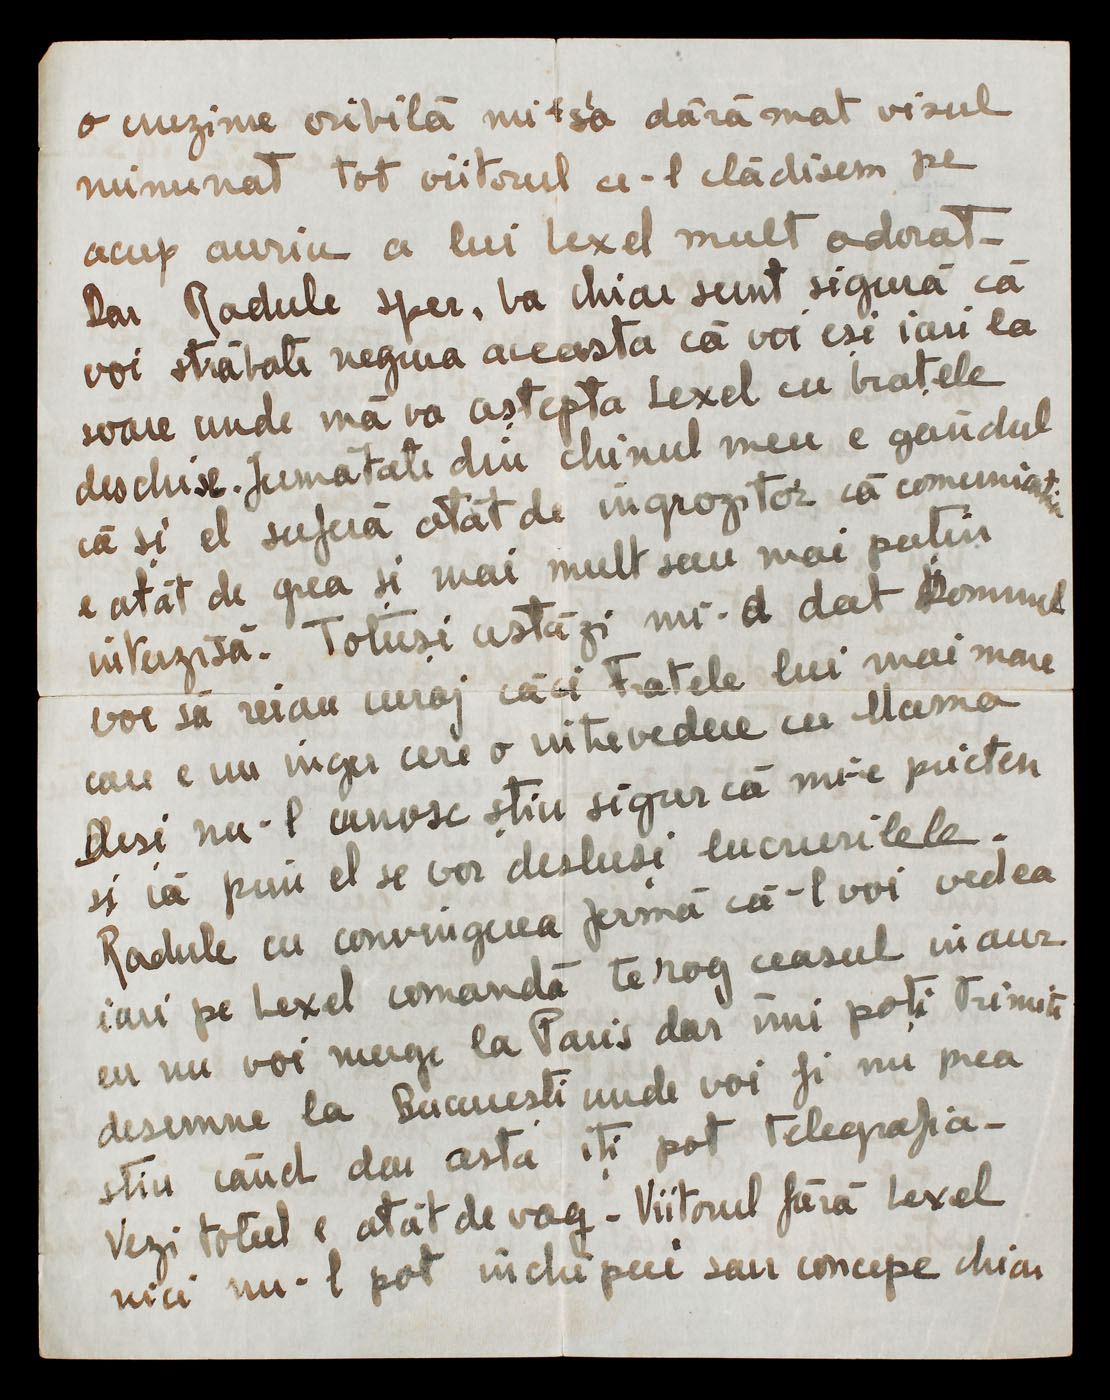 o cruzime oribilă mi s'a dărămat visul
minunat tot viitorul ce-l clădisem pe
acup auriu a lui Lexel mult adorat-
Dar Radule sper, ba chiar sunt sigură că
voi străbate negura aceasta că voi eși iari la
soare unde mă va aștepta Lexel cu brațele
deschise. Jumătate din chinul meu e gândul
că și el suferă atât de îngrozitor că comunicația
e atât de grea și mai mult sau mai puțin
interzisă. Totuși astăzi mi-a dat Domnul
voe să reiau curaj căci Fratele lui mai mare
care e un inger cere o intrevedere cu Mama
Deși nu-l cunosc știu sigur că mi-e prieten
și că prin el se vor desluși lucrurilele.
Radule cu convingerea fermă că-l voi vedea
iari pe Lexel comandă te rog ceasul in aur
eu nu voi merge la Paris dar îmi poți trimite
desemne la Bucuresti unde voi fi nu prea
stiu când dar asta iți pot telegrafia-
Vezi totul e atât de vag - Viitorul fără Lexel
nici nu-l pot inchipui sau concepe chiar